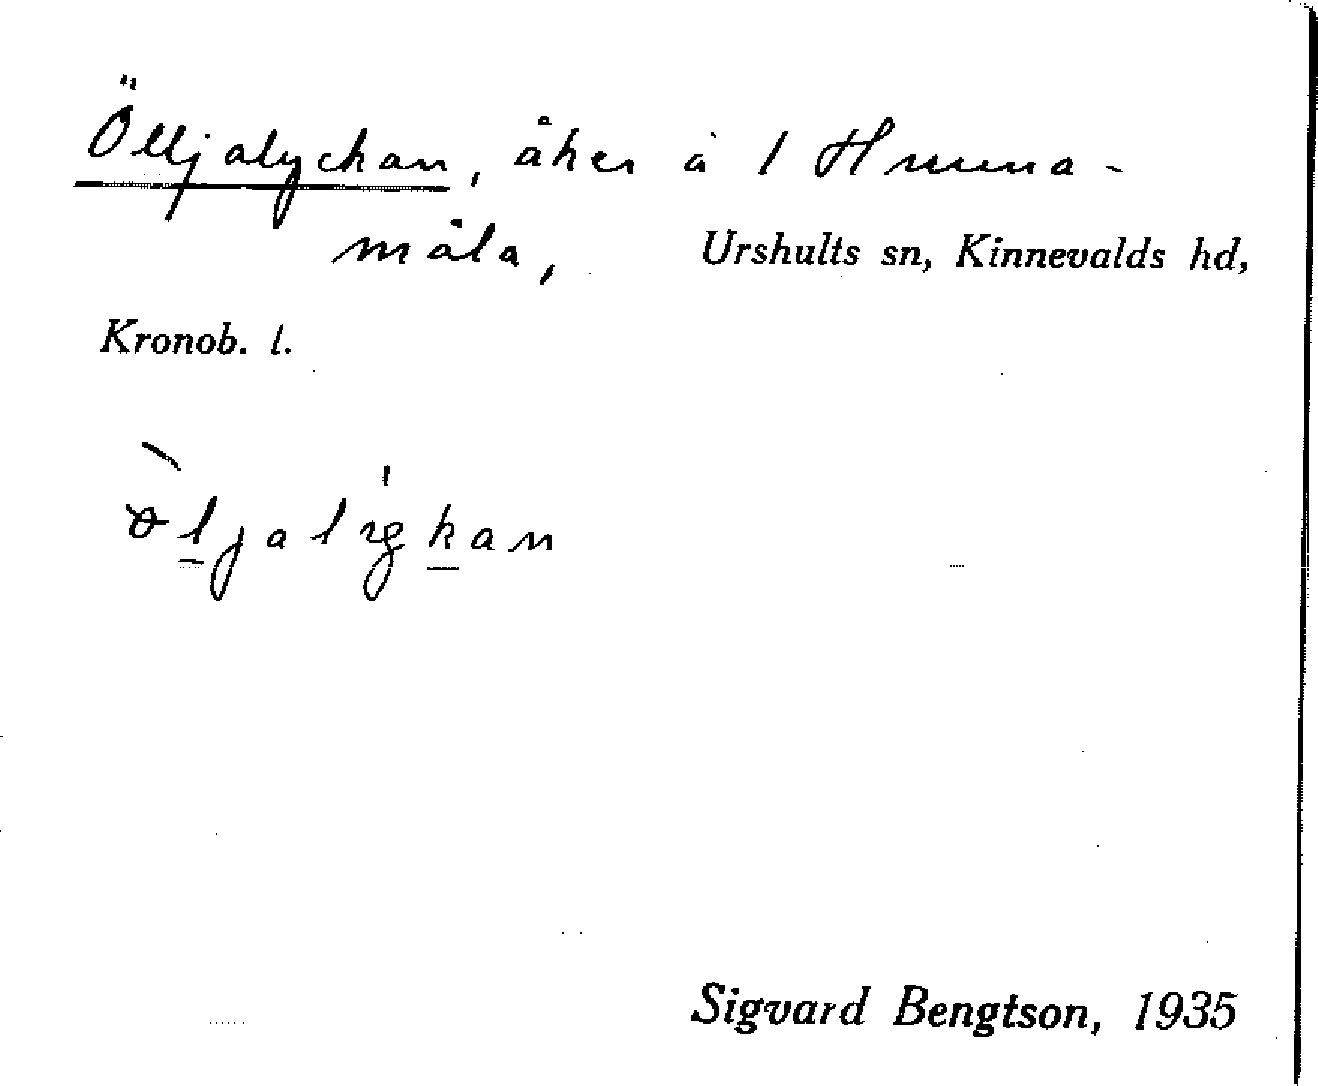 Ölljalyckan, åker å 1 Hunna-
måla, Urshults sn, Kinnevalds hd,
Kronob. l.
Sigvard Bengtson, 1935